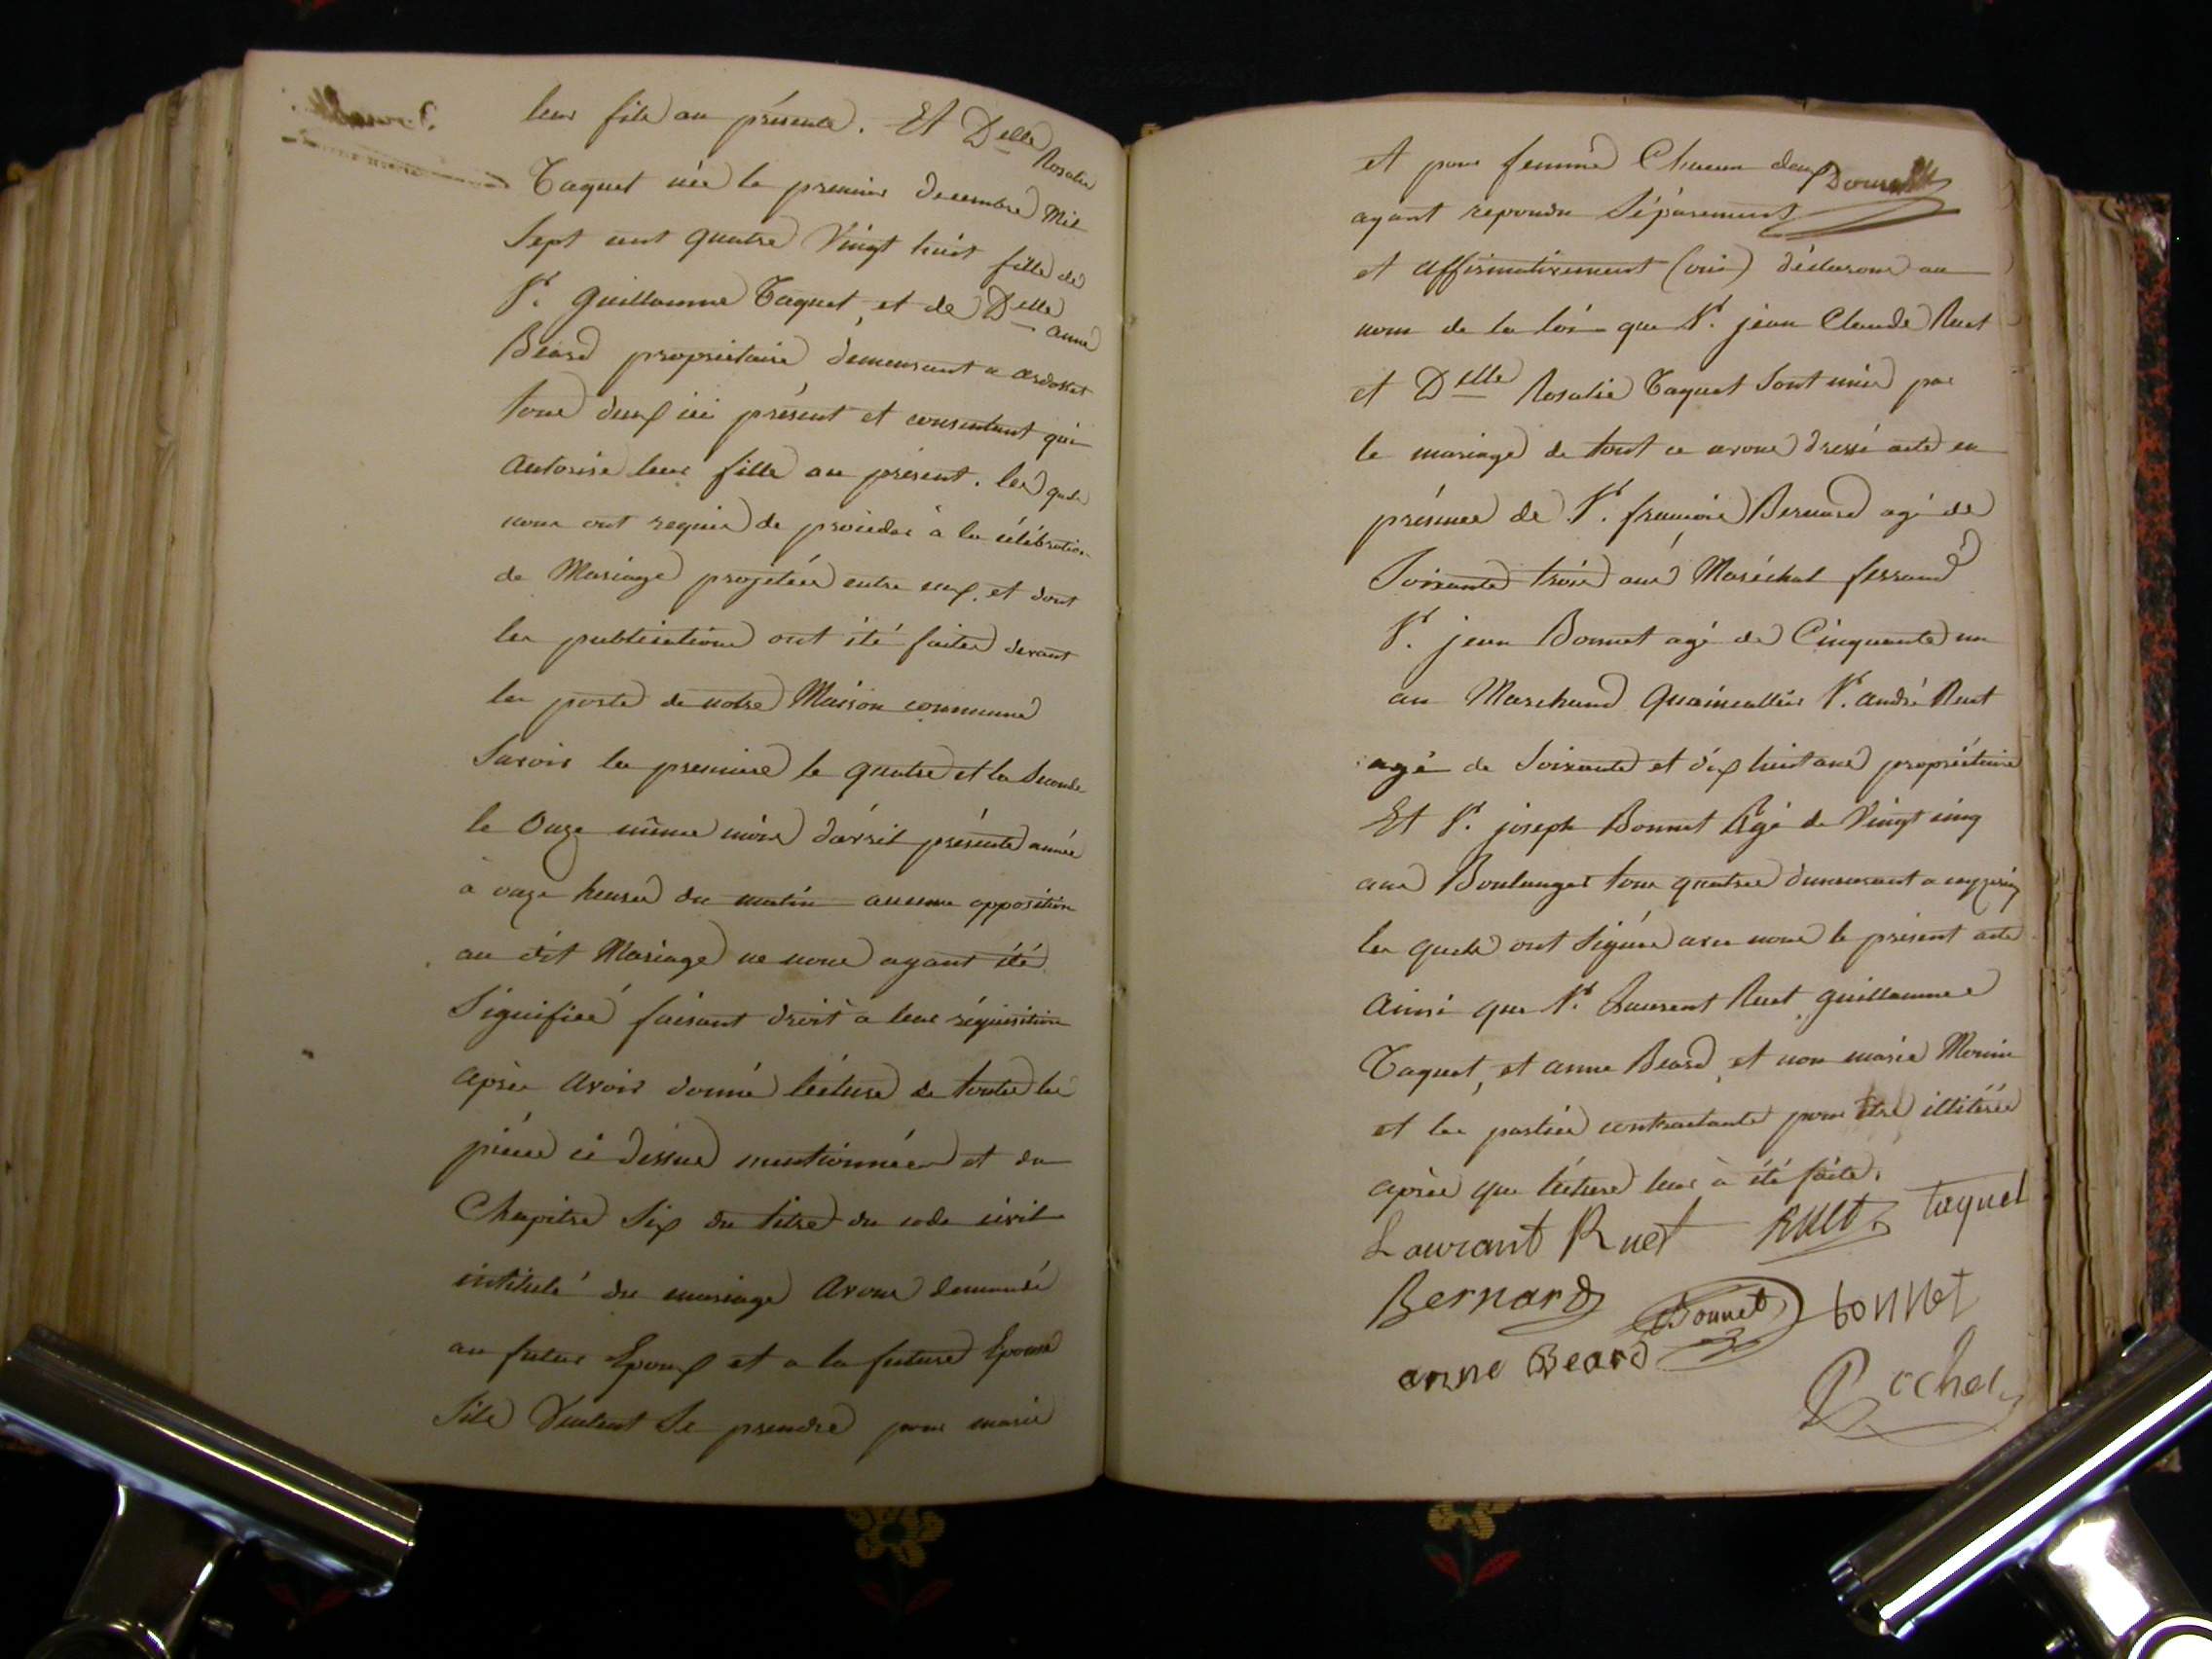 leur fils au présente. Et Delle Rosalie
Taquet née le premier Decembre Mil
Sept cent quatre Vingt huit fille de
Sr. Guillaume Taquet, et de Delle anne
Béard propriétaire demeurant a
tous deux ici présent et consentant qui
autorise leur fille au présent. les quels
nous ont requis de proceder à la célébration
de Mariage projetée entre eux, et dont
les publications ont été faites devant
la porte de notre Maison commune
Savoir la premiere le quatre et la Seconde
le Onze même mois d'avril présente année
à onze heures du matin aucune opposition
au dit Mariage ne nous ayant été
Signifiée faisant droit à leur réquisition
après avoir donné lecture de toutes les
pièces ci dessus mentionnées et du
Chapitre Six du titre du code civil
intitulé du mariage avons demandé
au futur Epoux et a la future Epouse
Sils Veulent Se prendre pour marie
et pour femme Chacun deux
ayant repondu Séparement
et affirmativement (oui) déclarons au
nom de la loi que Sr. jean Claude Ruet
et Delle Rosalie Taquet Sont unis par
le mariage de tout ce avons dressé acte en
présence de Sr. françois Bernard agé de
Soixante trois ans Maréchal ferrand
Sr. jean Bonnet agé de Cinquante un
an Marchand Quaincallier Sr. andré Ruet
agé de Soixante et dix huit ans propriétaire
Et Sr. joseph Bonnet Agé de Vingt cinq
ans Boulanger tous quatres demeurant a
les quels ont Signés avec nous le présent acte
Ainsi que Sr. Laurent Ruet, guillaume
Taquet, et anne Béard, et non marie Monin
et les parties contractantes pour être illitérés
après que lécture leur à été faite.
Laurant Ruet Ruet taquet
Bernard Bonnet bonnet
anne Beard
Rochet